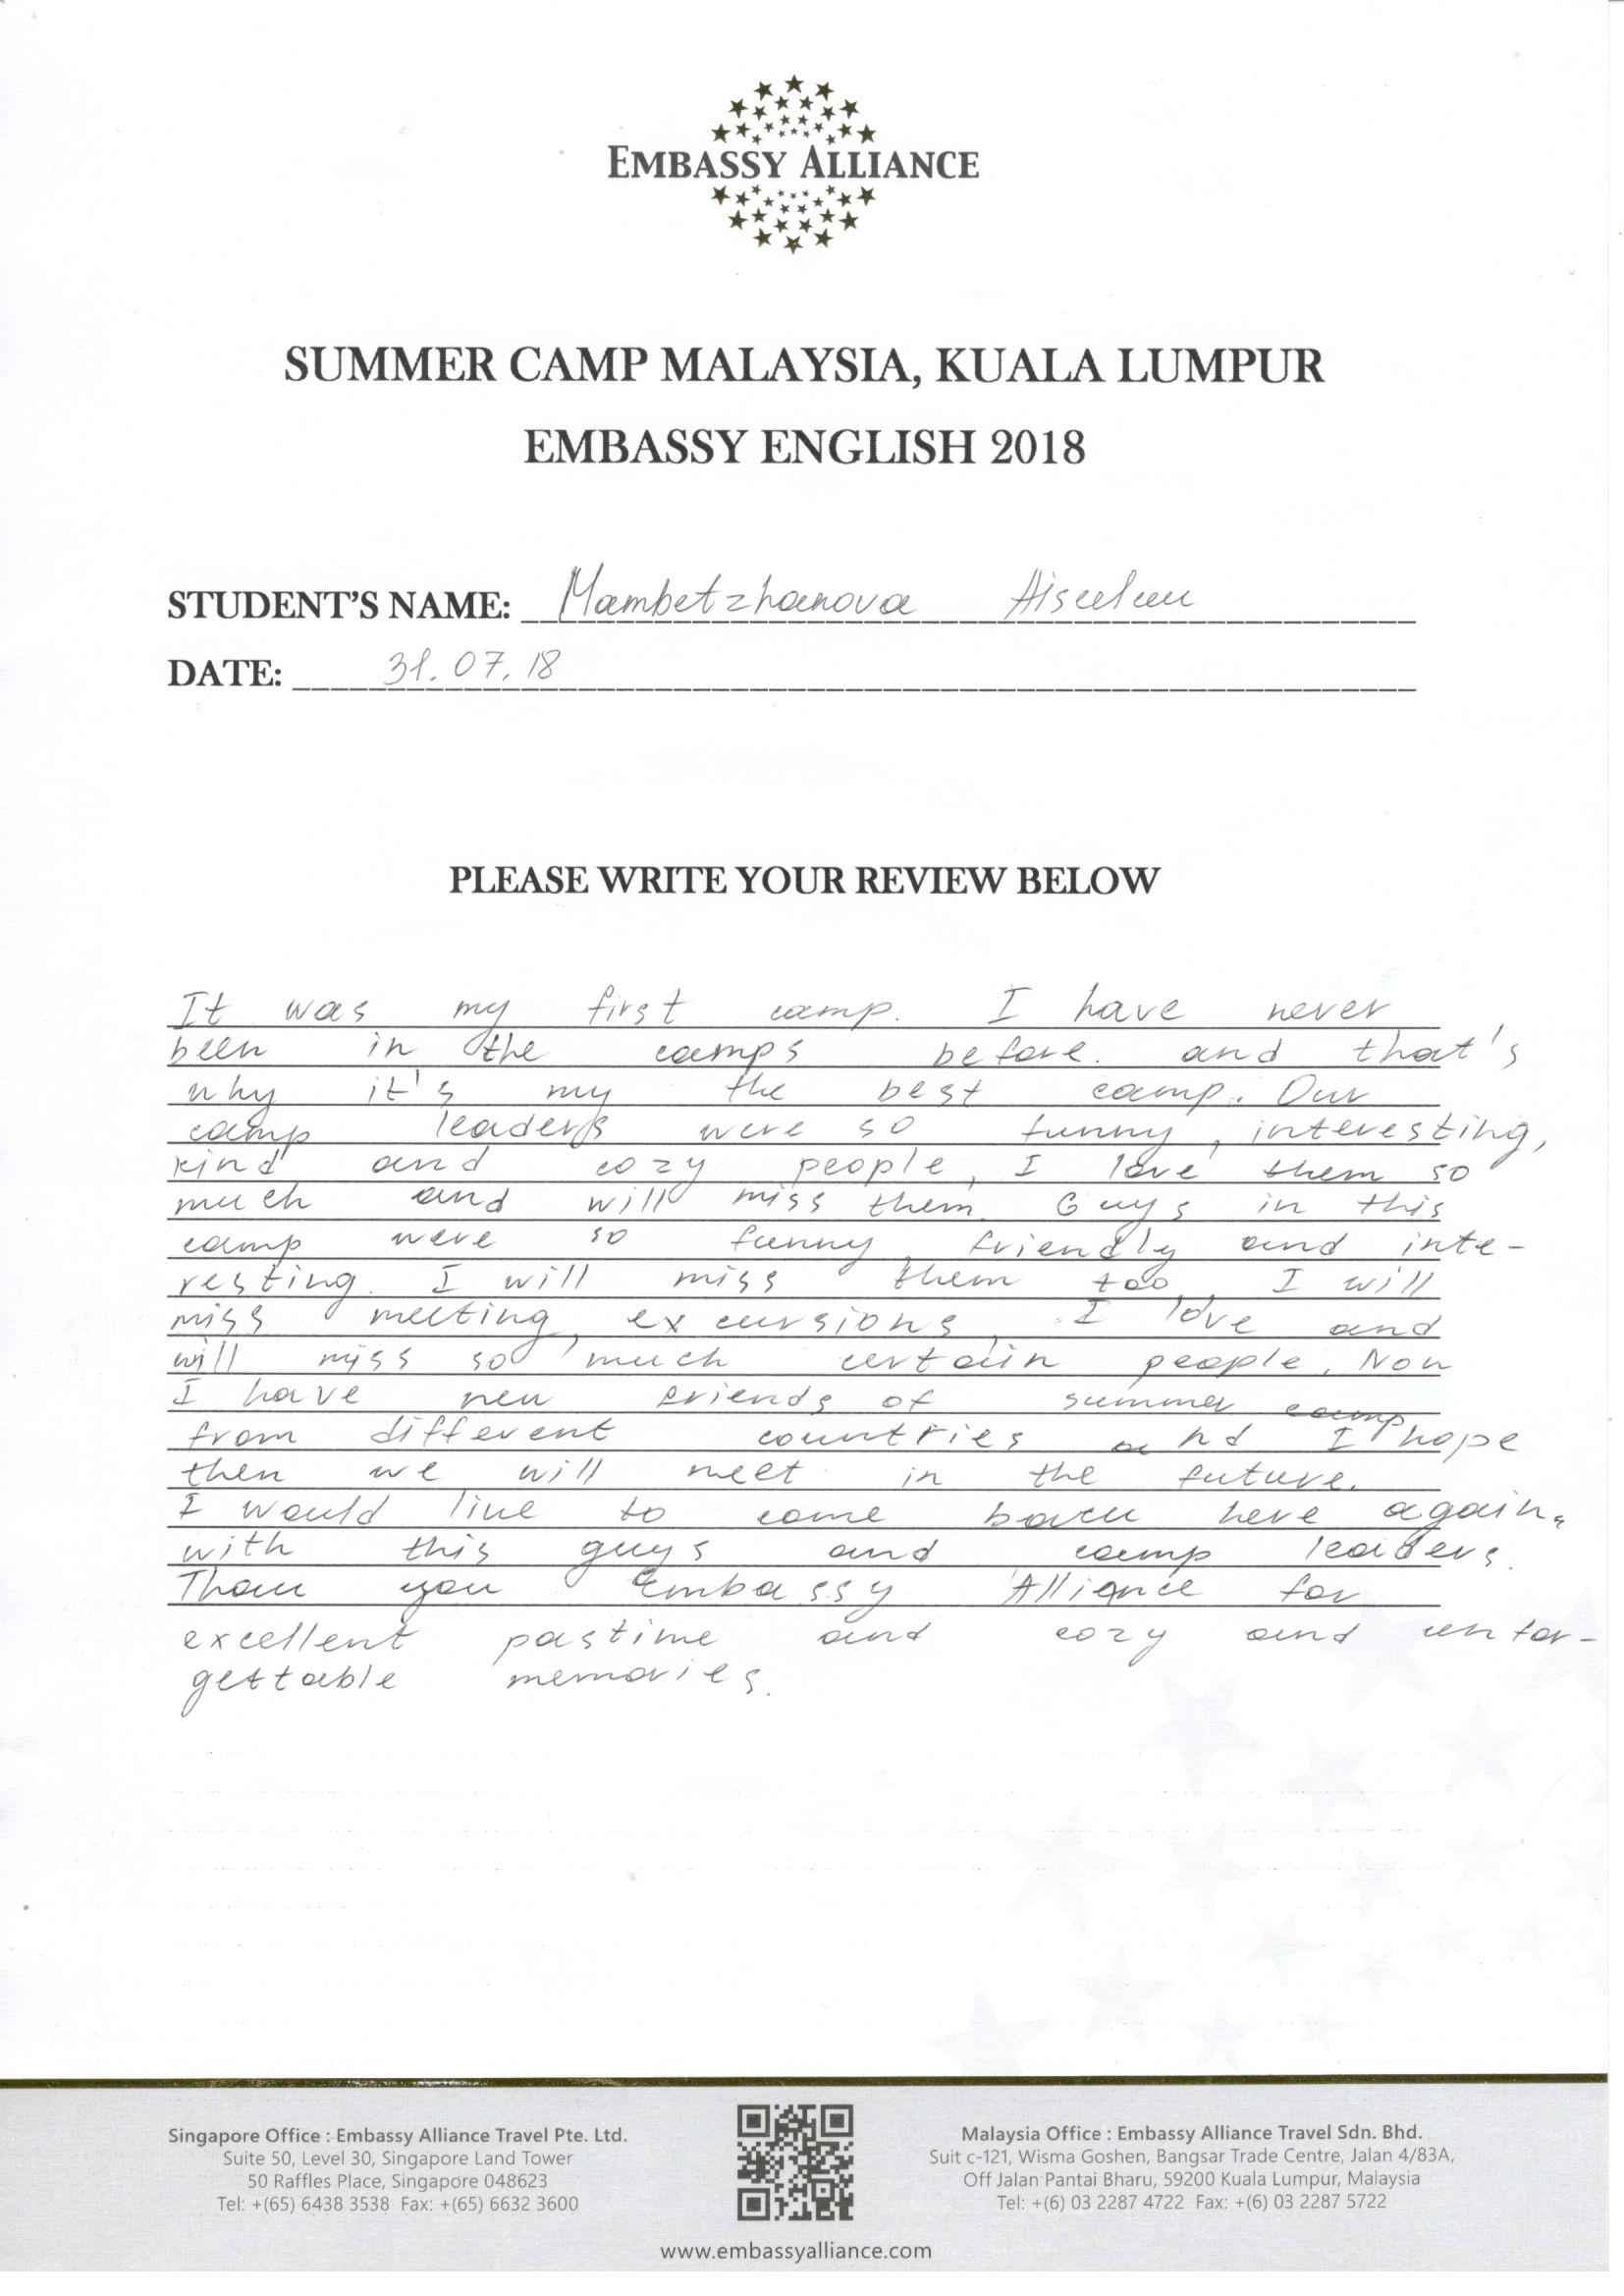 EMBASSY ALLIANCE
SUMMER CAMP MALAYSIA, KUALA LUMPUR
EMBASSY ENGLISH 2018
STUDENT'S NAME: Mambetzhanova Aisulu
DATE: 31.07.18
PLEASE WRITE YOUR REVIEW BELOW
It was my first camp. I have never
been in the camps before. and that's
why it's my the best camp. Our
camp leaders were so funny, interesting,
kind and cozy people, I love them so
much and will miss them. Guys in this
camp were so funny, friendly and inte-
resting. I will miss them too, I will
miss meeting, excursions, I love and
will miss so much certain people. Now
I have new friends of summer camp
from different countries and I hope
then we will meet in the future.
I would like to come back here again,
with this guys and camp leaders.
Thank you Embassy Alliance for
excellent pastime and cozy and unfor-
gettable memories.
Singapore Office : Embassy Alliance Travel Pte. Ltd.
Suite 50, Level 30, Singapore Land Tower
50 Raffles Place, Singapore 048623
Tel: +(65) 6438 3538 Fax: +(65) 6632 3600
Malaysia Office : Embassy Alliance Travel Sdn. Bhd.
Suit c-121, Wisma Goshen, Bangsar Trade Centre, Jalan 4/83A,
Off Jalan Pantai Bharu, 59200 Kuala Lumpur, Malaysia
Tel: +(6) 03 2287 4722 Fax: +(6) 03 2287 5722
www.embassyalliance.com